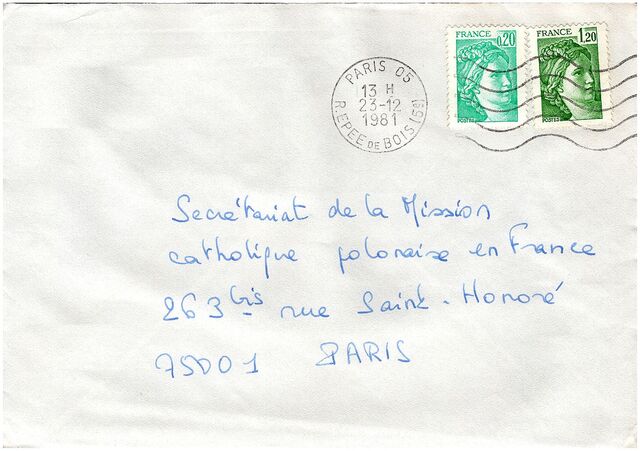 FRANCE 0,20
FRANCE 1,20
POSTES
POSTES
PARIS 05
13 H
23-12
1981
R. EPEE DE BOIS (5e)
Secrétariat de la Mission
catholique polonaise en France
263 bis rue Saint-Honoré
75001 PARIS